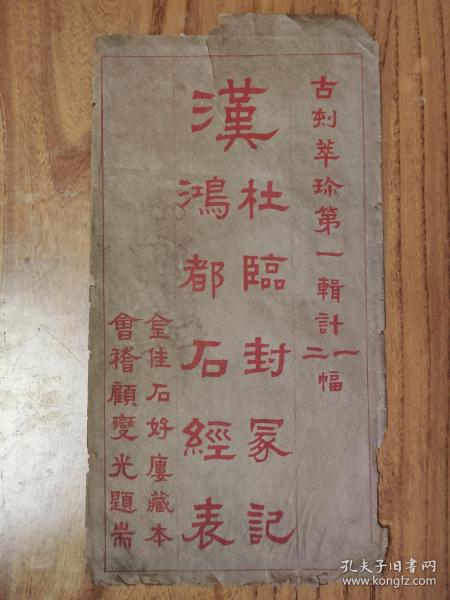 古刻萃珍第一輯計一二幅
漢
杜臨封冢記
鴻都石經表
金佳石好廔藏本
會稽顧燮光題耑
孔夫子旧书网
www.kongfz.com